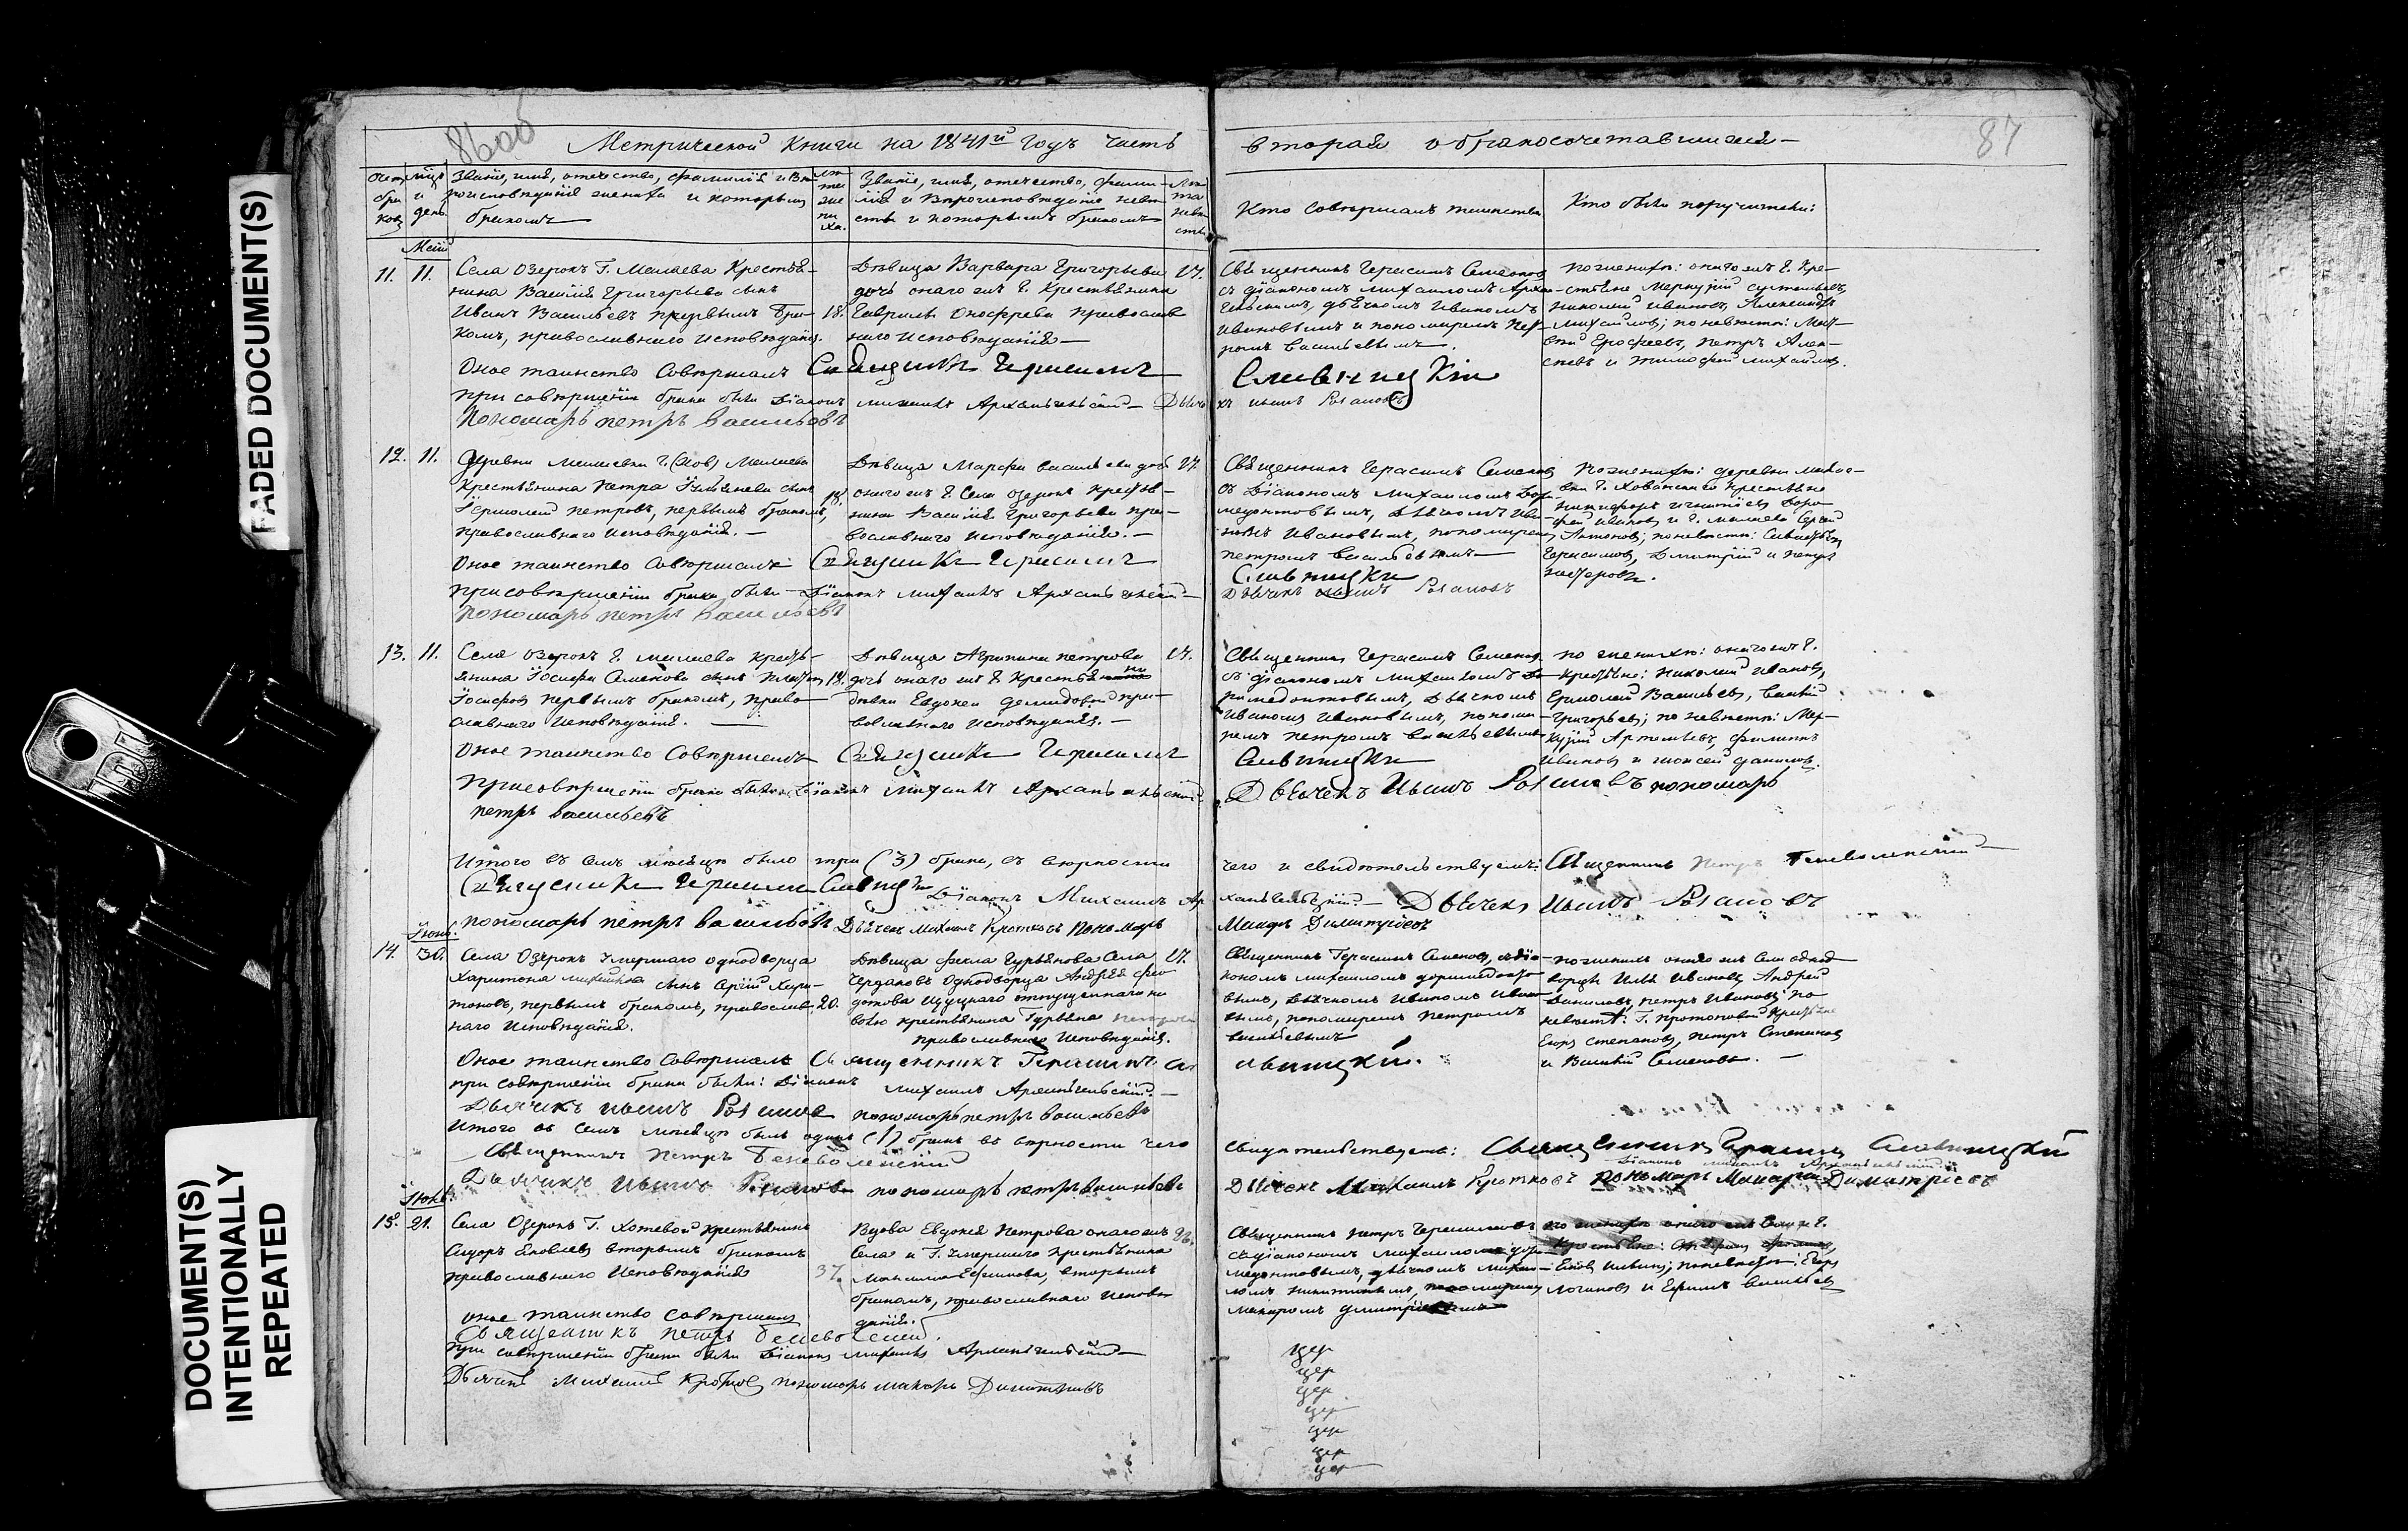 FADED DOCUMENT(S)
DOCUMENT(S)
INTENTIONALLY
REPEATED
86 об
87
Метрической книги на 1841й годъ часть вторая о бракосочетавшихся
Званіе, имя, отечество, фамилія и вѣроисповѣданіе жениха и которымъ
бракомъ
Званіе, имя, отечество, фами-
лія и вѣроисповѣданіе невѣ-
сты и которымъ бракомъ
Кто совершалъ таинство
Кто были поручители:
Маій
11. 11. Села Озерокъ Г. Милаева Крестья-
нина Василія Григорьева сынъ
Иванъ Васильевъ первымъ бра-
комъ, православнаго исповѣданія.
18.
Дѣвица Варвара Григорьева
дочь онаго жъ Г. Крестьянина
Гаврилы православ
наго исповѣданія
17.
Священникъ Герасимъ Семеновъ
съ діакономъ Михаиломъ
дьячкомъ Иваномъ
Ивановымъ и пономаремъ Пет-
ромъ Васильевымъ.
по женихѣ: онаго жъ Г. Кре-
стьяне Меркурій
Николай Ивановъ, Александръ
Михайловъ; по невѣстѣ: Мат-
вей Ерофеевъ, Петръ Алек-
сеевъ и Тимофей Михайловъ.
Оное таинство совершалъ Священникъ Герасимъ Сливницкій
при совершеніи брака были Діаконъ Михаилъ Архангельскій Дьячекъ Иванъ Розановъ
Пономарь Петръ Васильевъ
12. 11. Деревни Г. Милаева
Крестьянина Петра сынъ
Ермолай Петровъ, первымъ бракомъ,
православнаго исповѣданія.
18.
Дѣвица Марфа Васильева дочь
онаго жъ Г. Села Озерокъ крестья-
нина Василія Григорьева пра-
вославнаго исповѣданія.
17.
Священникъ Герасимъ Семеновъ
съ Діакономъ Михаиломъ Дори-
медонтовымъ, дьячкомъ Ива-
номъ Ивановымъ, пономаремъ
Петромъ Васильевымъ
По женихѣ: деревни
Г. Хованскаго крестьяне
Никифоръ Игнатіевъ
Ивановъ и Г. Милаева Сергей
Антоновъ; по невѣстѣ:
Герасимовъ, Дмитрій и Петръ
Оное таинство совершалъ Священникъ Герасимъ Сливницкій
при совершеніи брака были Діаконъ Михаилъ Архангельскій Дьячекъ Иванъ Розановъ
Пономарь Петръ Васильевъ
13. 11. Села Озерокъ Г. Милаева крест-
янина Іосифа Семенова сынъ Платонъ
Іосифовъ первымъ бракомъ, право-
славнаго исповѣданія.
18.
Дѣвица Агрипина Петрова
дочь онаго жъ Г. Крестьян
девки Евдокеи Демидовой пра-
вославнаго исповѣданія.
17.
Священникъ Герасимъ Семеновъ
съ діакономъ Михаиломъ До-
римедонтовымъ, дьячкомъ
Иваномъ Ивановымъ, понома-
ремъ Петромъ Васильевымъ
по женихѣ: онаго жъ Г.
Крестьяне: Николай Ивановъ,
Ермолай Васильевъ, Василій
Григорьевъ; по невѣстѣ: Мер-
курій Артемьевъ, Филиппъ
Ивановъ и Моисей Даниловъ.
Оное таинство совершалъ Священникъ Герасимъ Сливницкій
при совершеніи брака были Діаконъ Михаилъ Архангельскій Дьячекъ Иванъ Розановъ пономарь
Петръ Васильевъ
Итого въ семъ мѣсяцѣ было три (3) брака, въ вѣрности чего и свидѣтельствуемъ: Священникъ Петръ Беневоленскій
Священникъ Герасимъ Сливницкій Діаконъ Михаилъ Архангельскій Дьячекъ Иванъ Розановъ
пономарь Петръ Васильевъ Дьячекъ Михаилъ Кротковъ Пономарь Макаръ Димитріевъ
Іюнь.
14. 30. Села Озерокъ умершаго однодворца
Харитона сынъ Сергій Хари-
тоновъ, первымъ бракомъ, православ-
наго исповѣданія.
20.
Дѣвица Фекла Гурьянова Села
Чердаковъ Однодворца Андрея Фе-
дотова отпущеннаго на
волю крестьянина Гурьяна
православнаго исповѣданія.
17.
Священникъ Герасимъ Семеновъ, съ діа-
кономъ Михаиломъ Доримедонто-
вымъ, дьячкомъ Иваномъ Ивано-
вымъ, пономаремъ Петромъ
Васильевымъ
по женихѣ онаго жъ села одно-
дворцы Илья Ивановъ, Андрей
Даниловъ, Петръ Ивановъ; по
невѣстѣ: Г. Протопоповой крестьяне
Егоръ Степановъ, Петръ Степановъ
и Василій Семеновъ.
Оное таинство совершалъ Священникъ Герасимъ Сливницкій.
при совершеніи брака были: Діаконъ Михаилъ Архангельскій.
Дьячекъ Иванъ Розановъ пономарь Петръ Васильевъ
Итого въ семъ мѣсяцѣ былъ одинъ (1) бракъ въ вѣрности чего свидѣтельствуемъ: Священникъ Герасимъ Сливницкій
Священникъ Петръ Беневоленскій Діаконъ Михаилъ Архангельскій
Дьячекъ Иванъ Розановъ пономарь Петръ Васильевъ Дьячекъ Михаилъ Кротковъ Пономарь Макаръ Димитріевъ
Іюль.
15. 21. Села Озерокъ Г. Хотевой крестьянинъ
Сидоръ Яковлевъ вторымъ бракомъ
православнаго исповѣданія
37.
Вдова Евдокея Петрова онаго жъ
Села и Г. умершаго крестьянина
Максима Ефимова, вторымъ
бракомъ, православнаго исповѣ-
данія.
26.
Священникъ Петръ Герасимовъ
съ діакономъ Михаиломъ Дори-
медонтовымъ, дьячкомъ Михаи-
ломъ Никитинымъ, пономаремъ
Макаромъ Димитріевымъ
по женихѣ онаго жъ Села и Г.
Крестьяне:
по невѣстѣ: Егоръ
Логиновъ и Ефимъ Васильевъ
Оное таинство совершалъ
Священникъ Петръ Беневоленскій.
при совершеніи брака были Діаконъ Михаилъ Архангельскій
Дьячекъ Михаилъ Кротковъ пономарь Макаръ Димитріевъ
цер
цер
цер
цер
цер
цер
цер